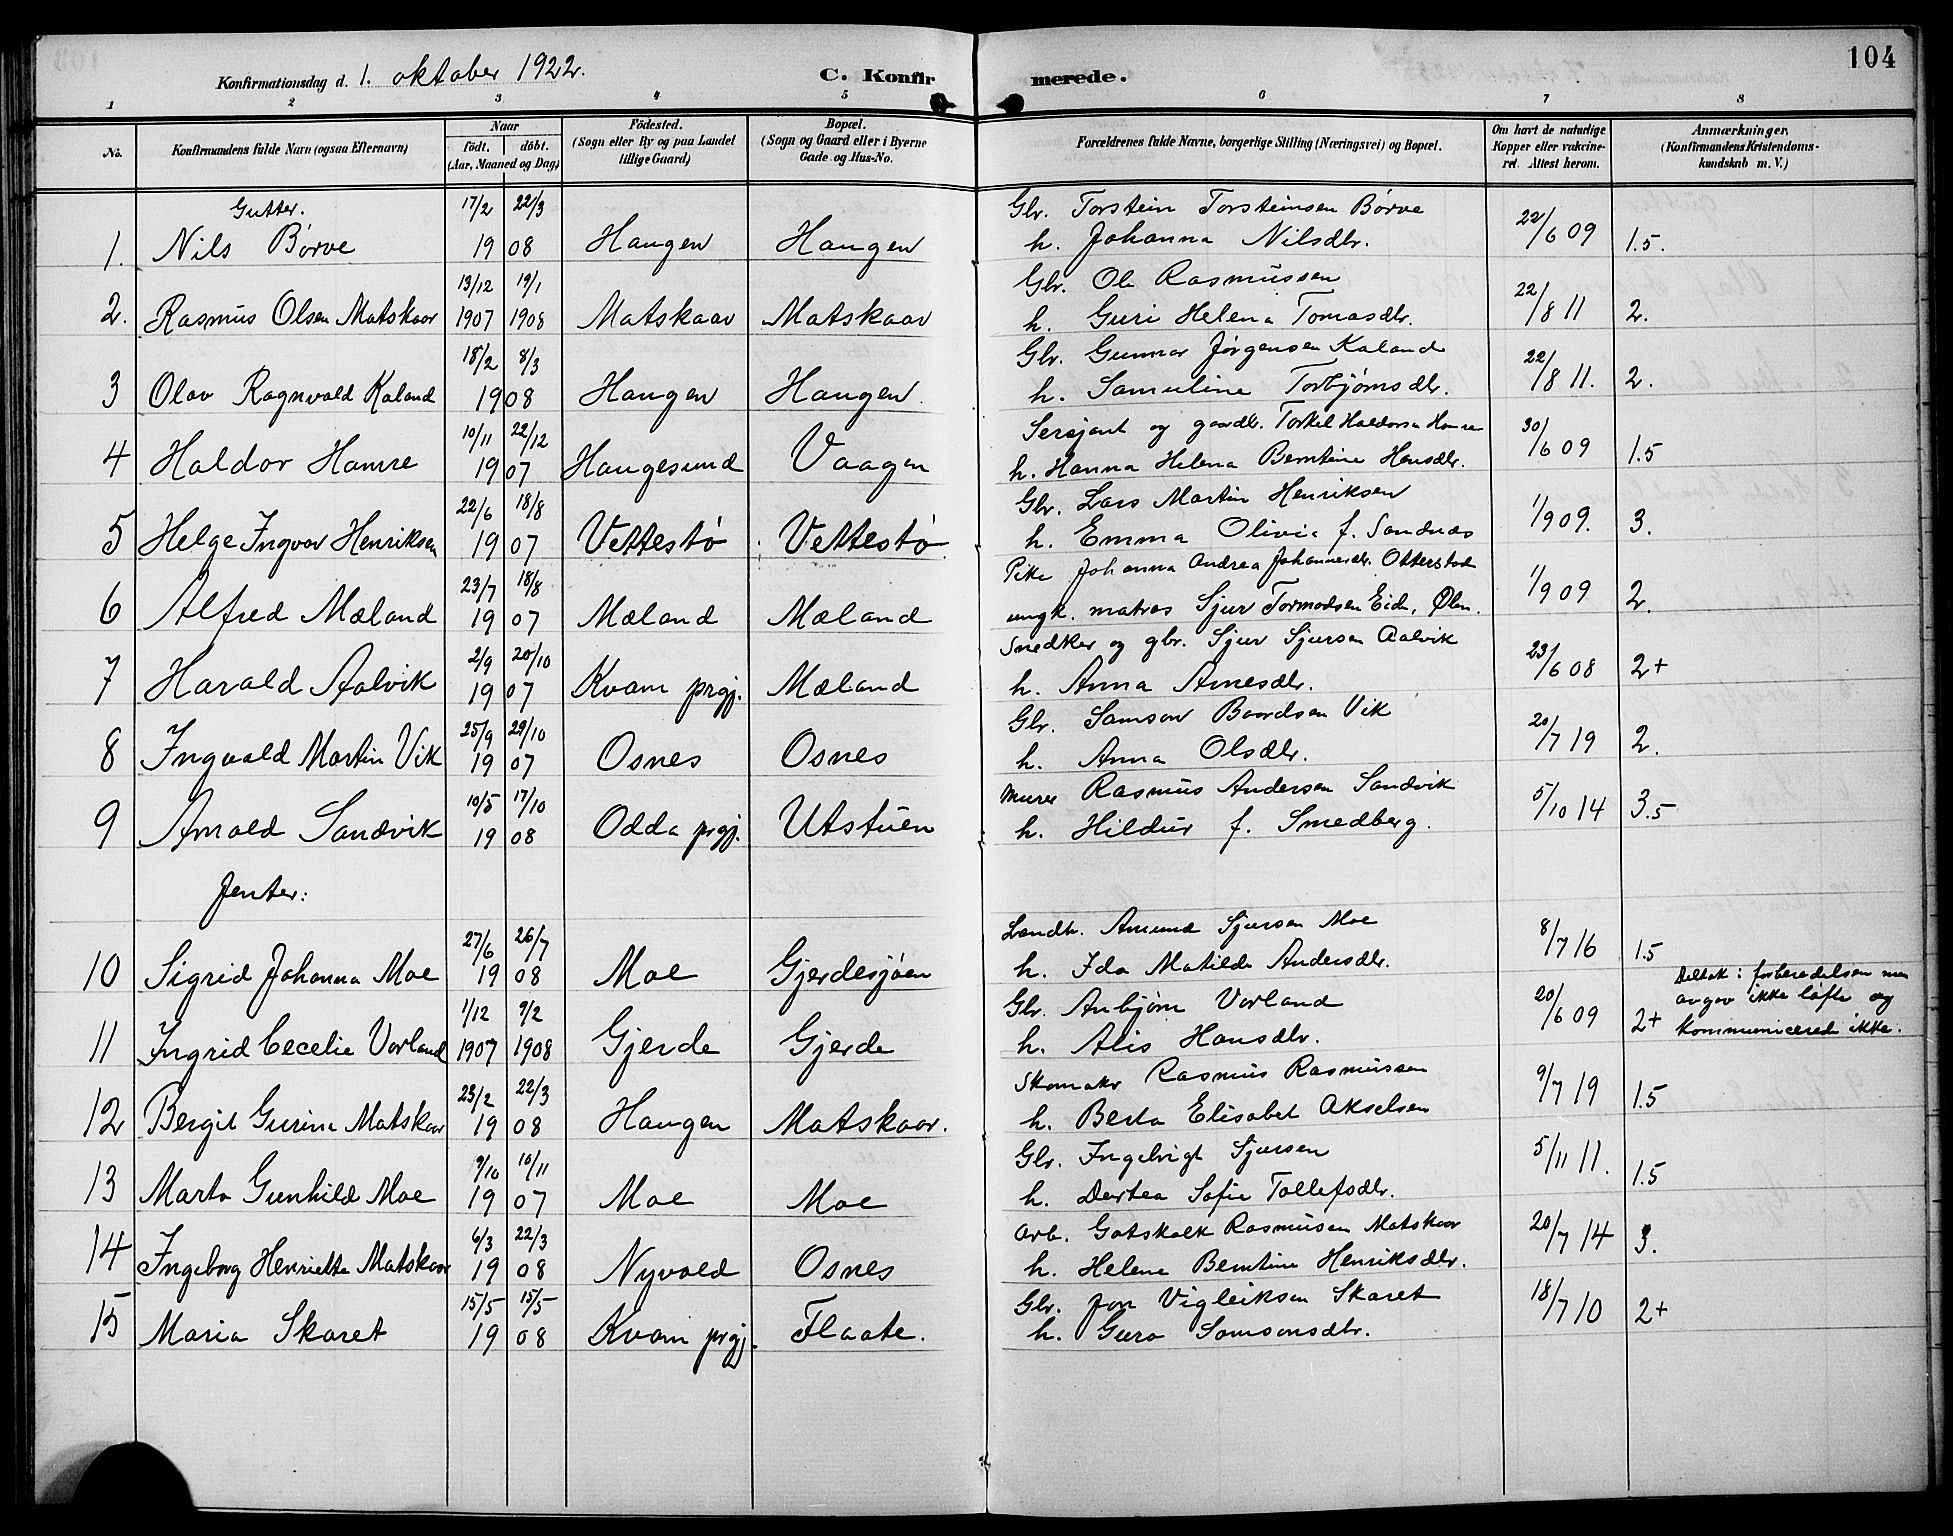 104
Konfirmationsdag d. 1. oktober 1922.
C. Konfirmerede.
1 2 3 4 5 6 7 8
No.
Konfirmandens fulde Navn (ogsaa Efternavn)
Naar
födt. döbt.
(Aar, Maaned og Dag)
Födested.
(Sogn eller By og paa Landet tillige Gaard)
Bopæl.
(Sogn og Gaard eller i Byerne Gade og Hus-No.
Forældrenes fulde Navne, borgerlige Stilling (Næringsvei) og Bopæl.
Om havt de naturlige Kopper eller vakcineret. Attest herom.
Anmærkninger.
(Konfirmandens Kristendomskundskab m. V.)
Gutter.
17/2 22/3 Gbr. Torstein Torsteinsen Børve
1. Nils Børve 19 08 Haugen Haugen h. Johanna Nilsdtr. 22/6 09 1.5.
13/12 19/1 Gbr. Ole Rasmussen
2. Rasmus Olsen Matskaar 1907 1908 Matskaar Matskaar h. Guri Helena Tomasdtr. 22/8 11 2.
18/2 8/3 Gbr. Gunnar Jørgensen Kaland
3 Olav Ragnvald Kaland 19 08 Haugen Haugen. h. Samuline Torbjørnsdtr. 22/8 11. 2.
10/11 22/12 Sersjant og gaardbr. Torkel Haldorsen Hamre
4 Haldor Hamre 19 07 Haugesund Vaagen h. Hanna Helena Berntine Hansdtr. 30/6 09 1.5
22/6 18/8 Gbr. Lars Martin Henriksen
5 Helge Ingvar Henriksen 19 07 Vettestø Vettestø h. Emma Olivia f. Sandnæs 1/9 09. 3.
23/7 18/8 Pike Johanna Andrea Johannesdtr. Otterstad
6 Alfred Mæland 19 07 Mæland Mæland ungk. matros Sjur Tormodsen Eide, Ølen. 1/9 09 2.
2/9 20/10 Snedker og gbr. Sjur Sjursen Aalvik
7 Harald Aalvik 19 07 Kvam prgj. Mæland h. Anna Arnesdtr. 23/6 08 2+
25/9 29/10 Gbr. Samson Baardsen Vik
8 Ingvald Martin Vik 19 07 Osnes Osnes h. Anna Olsdtr. 20/7 19 2.
10/5 17/10 Murer Rasmus Andersen Sandvik
9 Arnold Sandvik 19 08 Odda prgj. Utstuen h. Hildur f. Smedberg. 5/10 14 3.5
Jenter:
27/6 26/7 Landh. Amund Sjursen Moe
10 Sigrid Johanna Moe 19 08 Moe Gjerdesjøen h. Ida Matilde Andersdtr. 8/7 16 1.5
1/12 9/2 Gbr. Anbjørn Vorland
11 Ingrid Cecelie Vorland 1907 1908 Gjerde Gjerde h. Alis Hansdtr. 20/6 09 2+ Deltok i forberedelsen men avgav ikke løfte og kommunicerede ikke.
23/2 22/3 Skomaker Rasmus Rasmussen
12 Bergit Gurina Matskaar 19 08 Haugen Matskaar. h. Berta Elisabet Akselsen 9/7 19 1.5
9/10 10/11 Gbr. Ingebrigt Sjursen
13 Marta Gunhild Moe 19 07 Moe Moe h. Dortea Sofie Tollefsdtr. 5/11 11. 1.5
6/3 22/3 Arb. Gotskalk Rasmusen Matskaar
14 Ingeborg Henriette Matskaar 19 08 Nyvold Osnes h. Helene Berntine Henriksdtr. 20/7 14 3.
15/5 15/5 Gbr. Jon Vigleiksen Skaret
15 Maria Skaret 19 08 Kvam prgj. Flaate. h. Guro Samsonsdtr. 18/7 10 2+